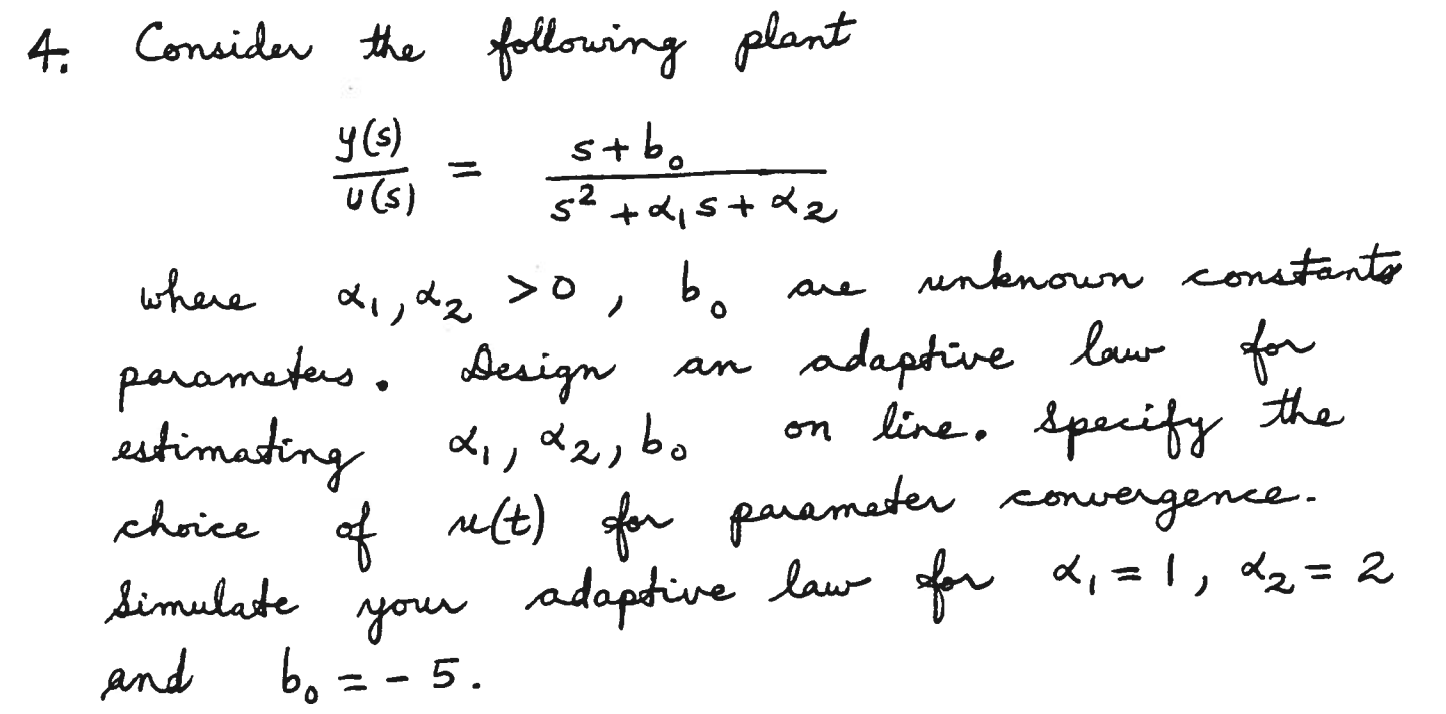 4. Consider the following plant
y(s)/u(s) = (s + b₀)/(s² + α₁s + α₂)
where α₁, α₂ > 0, b₀ are unknown constants
parameters. Design an adaptive law for
estimating α₁, α₂, b₀ on line. Specify the
choice of u(t) for parameter convergence.
Simulate your adaptive law for α₁ = 1, α₂ = 2
and b₀ = - 5.